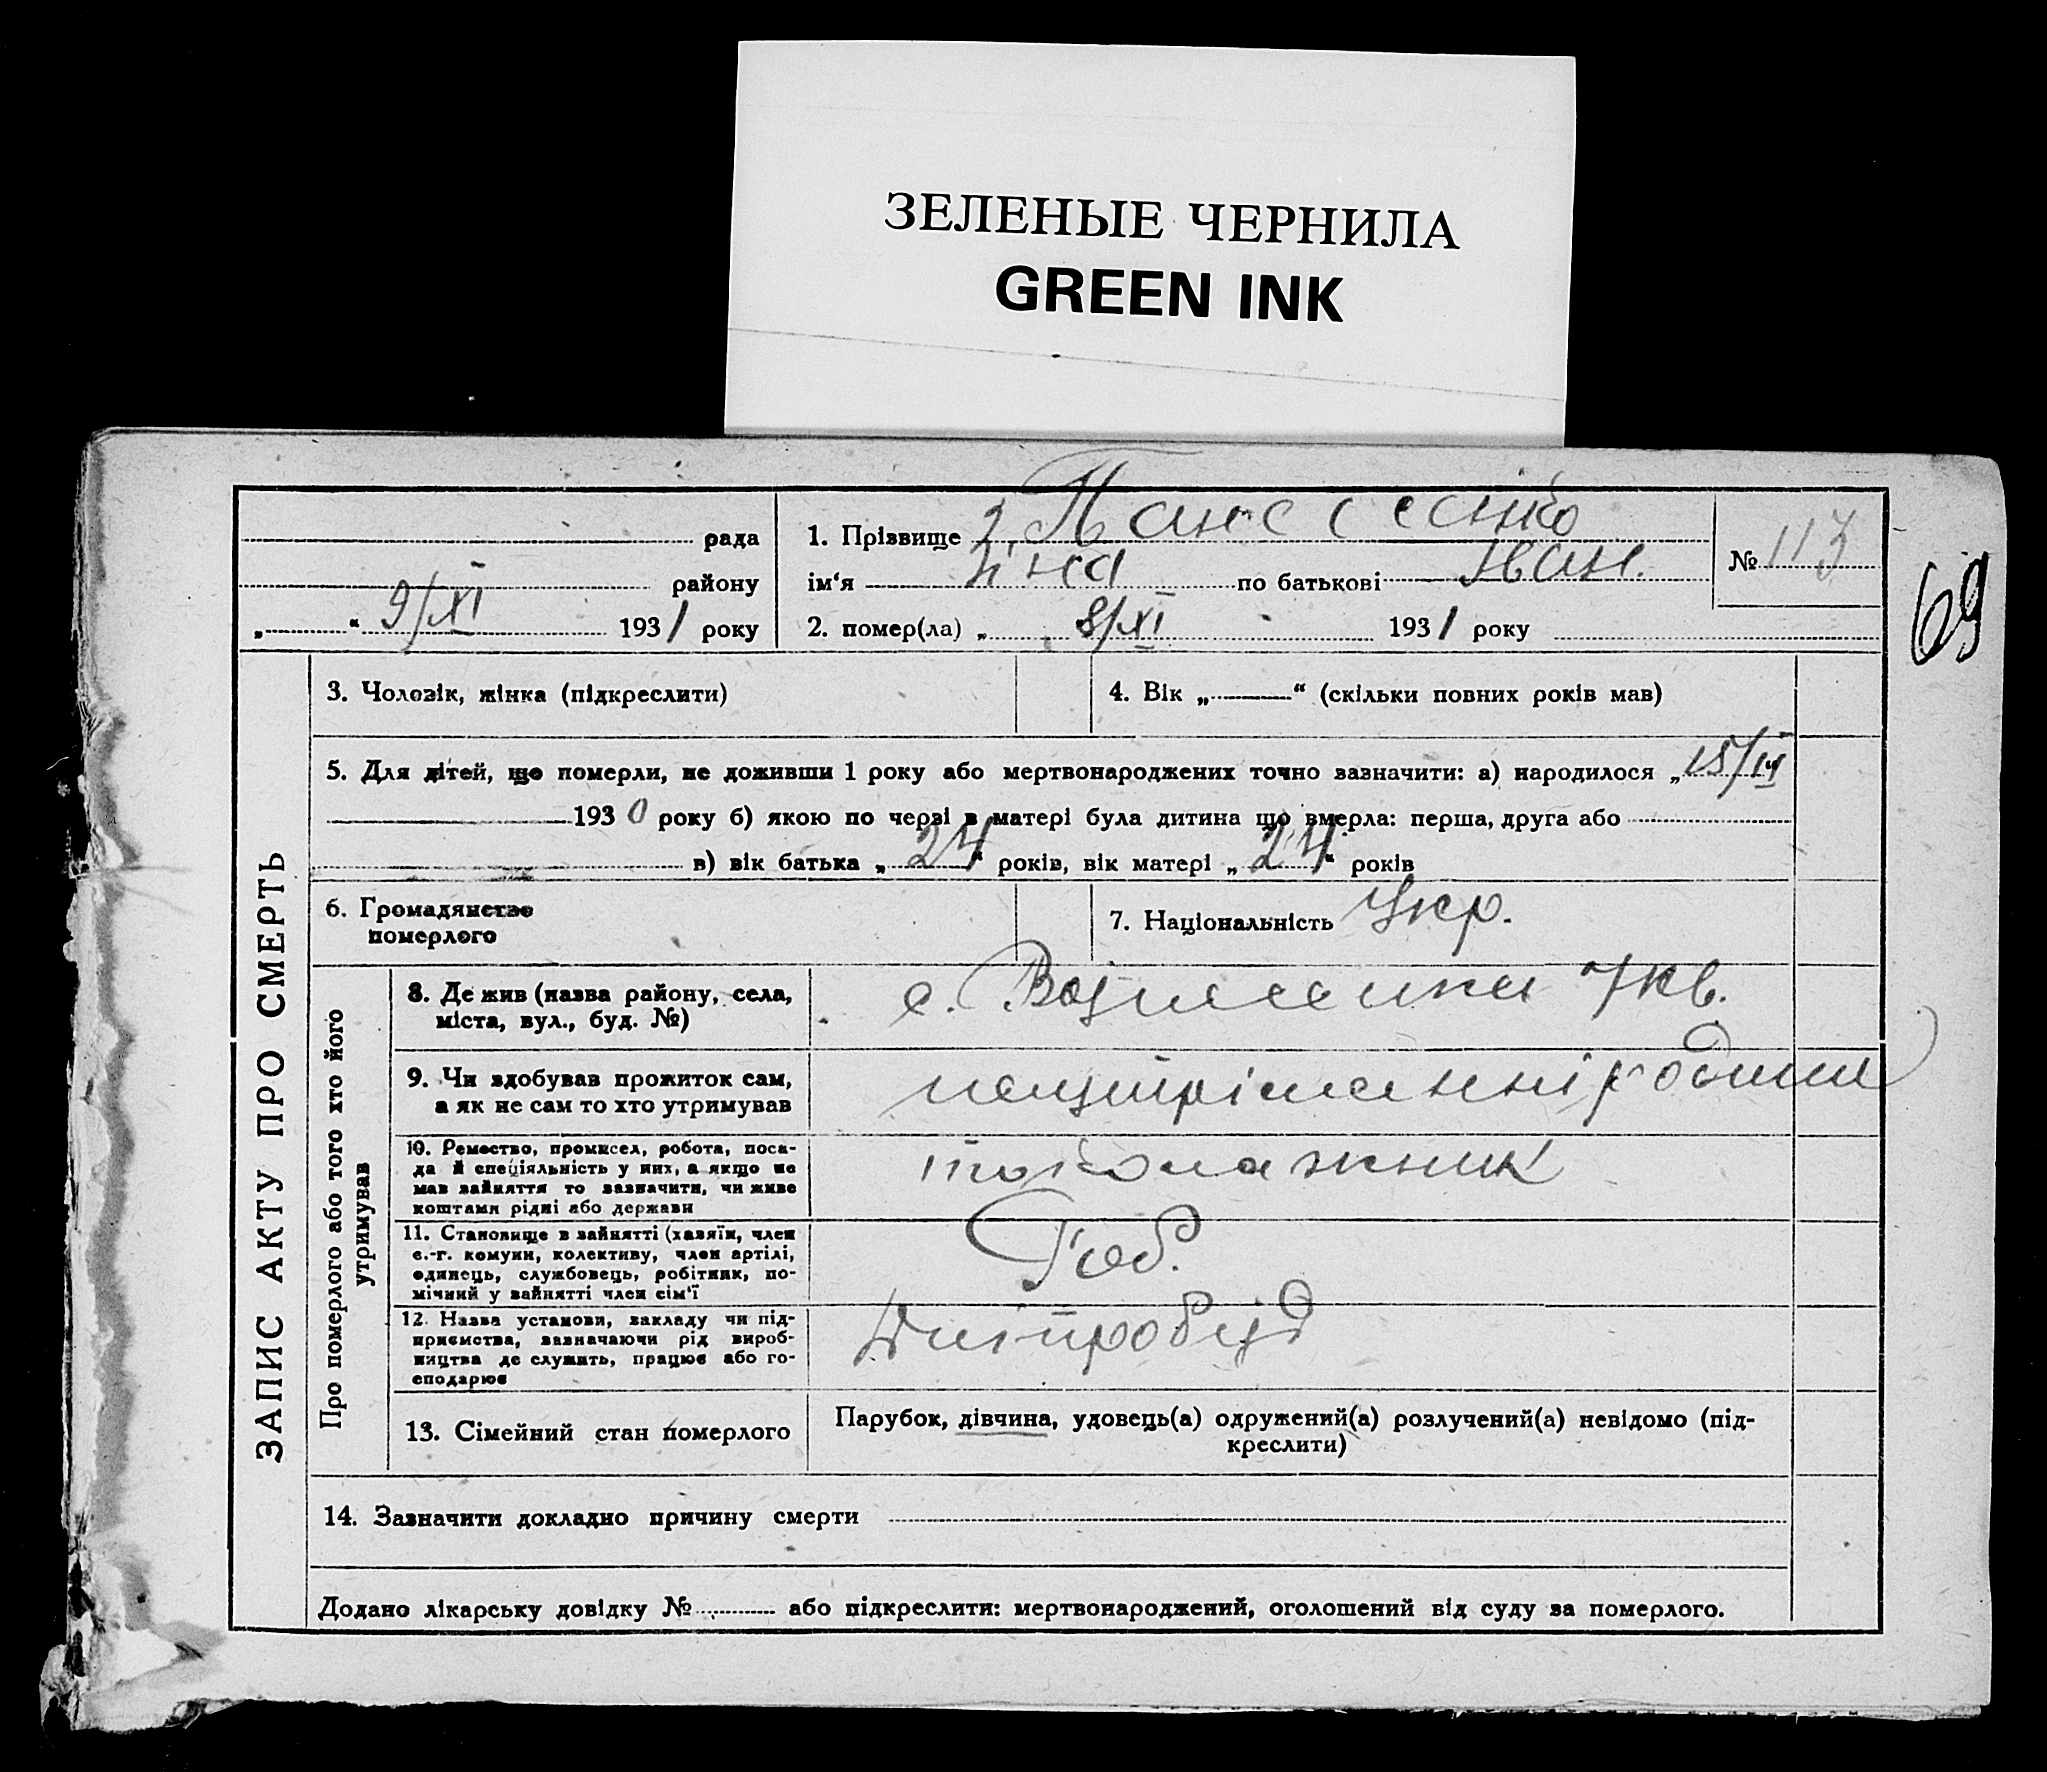 ЗЕЛЕНЫЕ ЧЕРНИЛА
GREEN INK
рада
району
„ “ 9/XI 1931 року
1. Прізвище
ім‘я Зіна по батькові Іван.
2. помер(ла) „ 8/XI 1931 року
№ 113
69
ЗАПИС АКТУ ПРО СМЕРТЬ
3. Чоловік, жінка (підкреслити)
4. Вік „ “ (скільки повних років мав)
5. Для дітей, що померли, не доживши 1 року або мертвонароджених точно зазначити: а) народилося „ 15/
1930 року б) якою по черзі в матері була дитина що вмерла: перша, друга або
в) вік батька „ 24 “ років, вік матері „ 24 “ років
6. Громадянство
померлого
7. Національність Укр.
Про померлого або того хто його
утримував
8. Де жив (назва району, села,
міста, вул., буд. №)
с. 7 кв.
9. Чи здобував прожиток сам,
а як не сам то хто утримував
на утріманні родини
10. Ремество, промисел, робота, поса-
да й спеціяльність у них, а якщо не
мав зайняття то зазначити, чи живе
коштами рідні або держави
11. Становище в зайнятті (хазяїн, член
с.-г. комуни, колективу, член артілі,
одинець, службовець, робітник, по-
мічний у зайнятті член сім‘ї
Роб.
12. Назва установи, закладу чи під-
приємства, зазначаючи рід вироб-
ництва де служить, працює або го-
сподарює
Дніпробуд
13. Сімейний стан померлого
Парубок, дівчина, удовець(а) одружений(а) розлучений(а) невідомо (під-
креслити)
14. Зазначити докладно причину смерти
Додано лікарську довідку № або підкреслити: мертвонароджений, оголошений від суду за померлого.